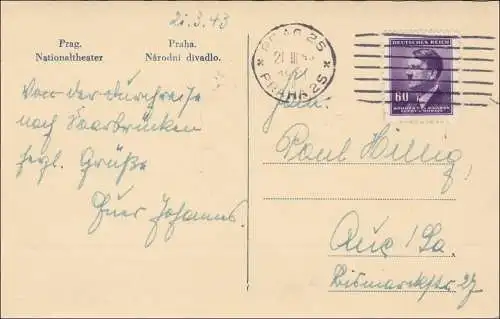 21.3.43
Prag. Praha.
Nationaltheater Národní divadlo.
Von der Durchreise
nach Saarbrücken
herzl. Grüße
Euer Johannes.
PRAG 25
21 III 43
PRAHA 25
DEUTSCHES REICH
60
Fam.
Paul Hillig,
Aue / Sa.
Bismarckstr. 27